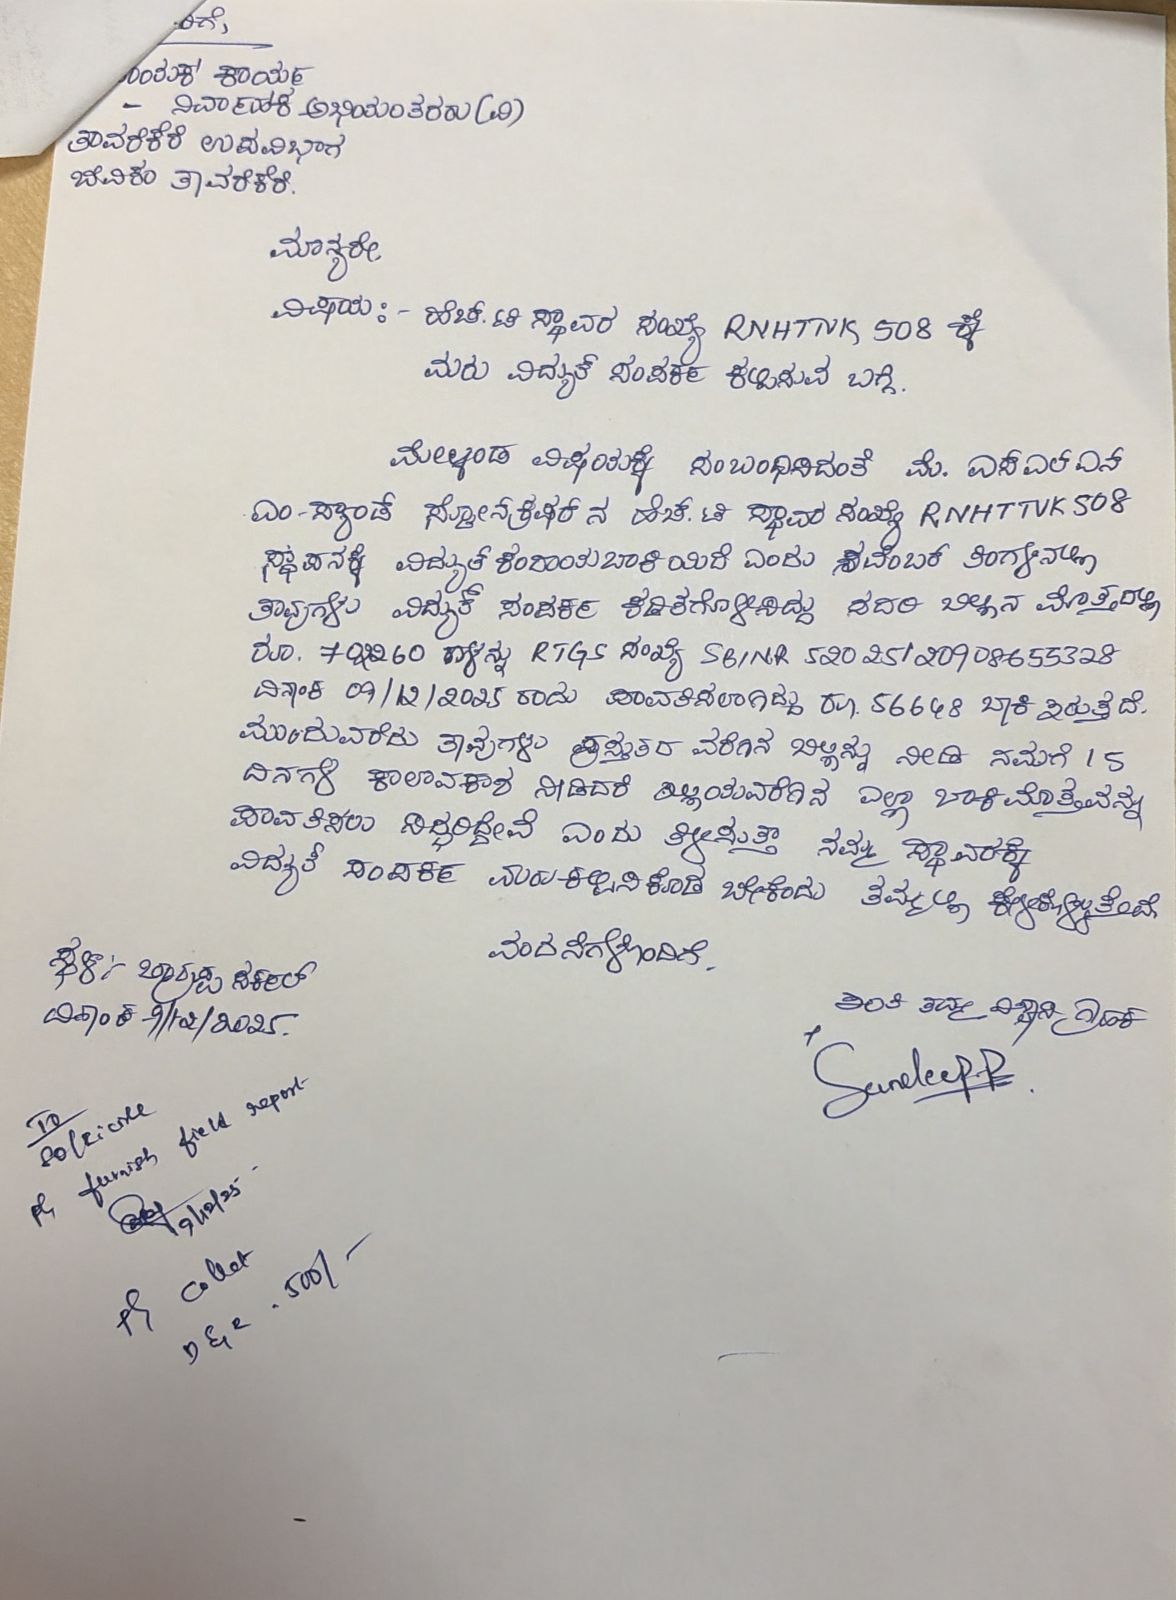 ರಿಗೆ,
ಕಾರ್ಯ
- ನಿರ್ವಾಹಕ ಅಭಿಯಂತರರು (ವಿ)
ತಾವರೆಕೆರೆ ಉಪವಿಭಾಗ
ಬೆವಿಕಂ ತಾವರೆಕೆರೆ.
ಮಾನ್ಯರೇ,
ವಿಷಯ:- ಹೆಚ್.ಟಿ ಸ್ಥಾವರ ಸಂಖ್ಯೆ RNHTNK 508 ಕ್ಕೆ
ಮರು ವಿದ್ಯುತ್ ಸಂಪರ್ಕ ಕಲ್ಪಿಸುವ ಬಗ್ಗೆ.
ಮೇಲ್ಕಂಡ ವಿಷಯಕ್ಕೆ ಸಂಬಂಧಿಸಿದಂತೆ ಮೆ. ಎಸ್ಎಲ್ಎನ್
ಎಂ-ಸ್ಯಾಂಡ್ ಸ್ಟೋನ್ಕ್ರಷರ್ ನ ಹೆಚ್.ಟಿ ಸ್ಥಾವರ ಸಂಖ್ಯೆ RNHTTVK508
ಸ್ಥಾಪನಕ್ಕೆ ವಿದ್ಯುತ್ ಕಂದಾಯಬಾಕಿಯಿದೆ ಎಂದು ನವೆಂಬರ್ ತಿಂಗಳಿನಲ್ಲಿ
ತಾವುಗಳು ವಿದ್ಯುತ್ ಸಂಪರ್ಕ ಕಡಿತಗೊಳಿಸಿದ್ದು ಸದರಿ ಬಿಲ್ಲಿನ ಮೊತ್ತದಲ್ಲಿ
ರೂ. ಗಳನ್ನು RTGS ಸಂಖ್ಯೆ SBINR 52025120908655328
ದಿನಾಂಕ 09/12/2025 ರಂದು ಪಾವತಿಸಲಾಗಿದ್ದು ರೂ. 56648 ಬಾಕಿ ಇರುತ್ತದೆ.
ಮುಂದುವರೆದು ತಾವುಗಳು ಪ್ರಸ್ತುತದ ವರೆಗಿನ ಬಿಲ್ಲನ್ನು ನೀಡಿ ನಮಗೆ 15
ದಿನಗಳ ಕಾಲಾವಕಾಶ ನೀಡಿದರೆ ಇಲ್ಲಿಯವರೆಗಿನ ಎಲ್ಲಾ ಬಾಕಿಮೊತ್ತವನ್ನು
ಪಾವತಿಸಲು ಸಿದ್ಧರಿದ್ದೇವೆ ಎಂದು ತಿಳಿಸುತ್ತಾ ನಮ್ಮ ಸ್ಥಾವರಕ್ಕೆ
ವಿದ್ಯುತ್ ಸಂಪರ್ಕ ಮರುಕಲ್ಪಿಸಿಕೊಡ ಬೇಕೆಂದು ತಮ್ಮಲ್ಲಿ ಕೇಳಿಕೊಳ್ಳುತ್ತೇವೆ
ವಂದನೆಗಳೊಂದಿಗೆ.
ಸ್ಥಳ:- ಸರ್ಕಲ್
ದಿನಾಂಕ 9/12/2025.
ಇಂತಿ ತಮ್ಮ ವಿಶ್ವಾಸಿ ಗ್ರಾಹಕ
Sandeep.P
To
pl, furnish field report
9/12/25
pl collect
500/-